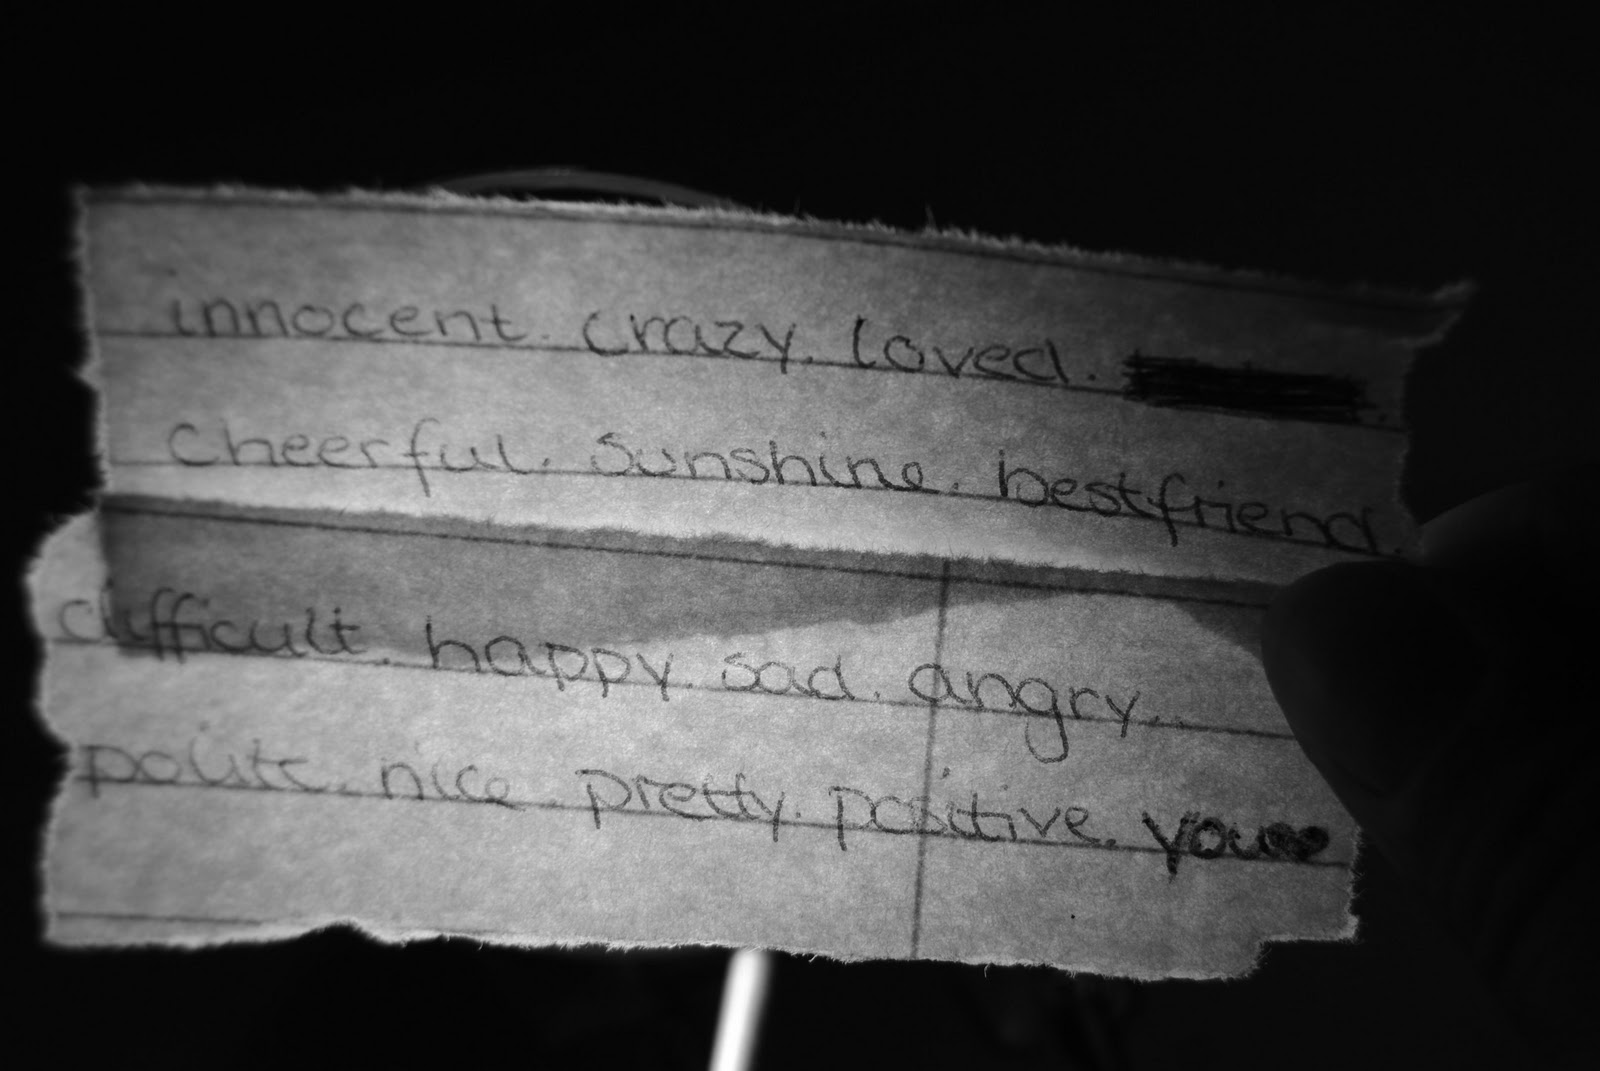 innocent. crazy. loved.
Cheerful. Sunshine. bestfriend.
difficult. happy. sad. angry..
polite. nice. pretty. positive. you♥